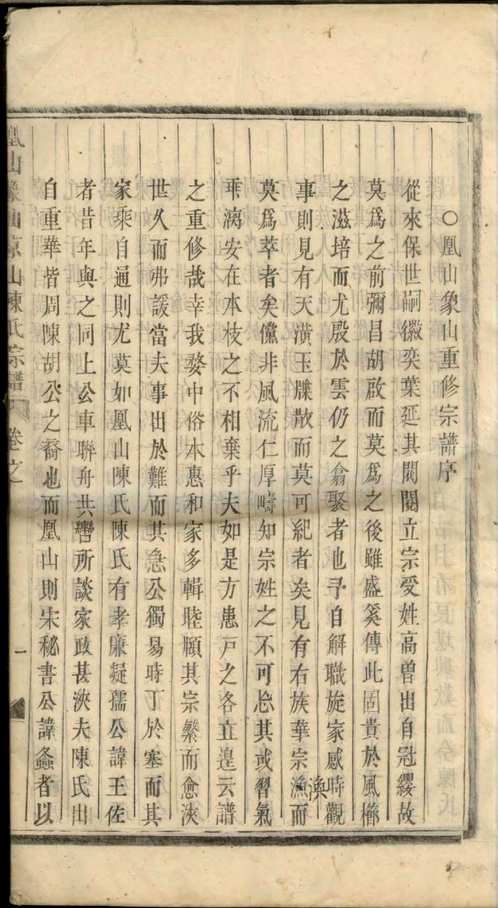 ○凰山象山重修宗譜序
從來保世嗣徽奕葉延其閥閱立宗受姓高曾出自冠纓故
莫爲之前彌昌胡啟而莫爲之後雖盛奚傳此固貴於風櫛
之滋培而尤殷於雲仍之翕聚者也予自解職旋家感時觀
事則見有天潢玉牒散而莫可紀者矣見有右族華宗漁而
渙
莫爲萃者矣儻非風流仁厚疇知宗姓之不可忘其或習氣
乖漓安在本枝之不相棄乎夫如是方患戸之各立遑云譜
之重修哉幸我婺中俗本惠和家多輯睦願其宗繁而愈浹
世久而弗諼當夫事出於難而其急公獨易時丁於塞而其
家乘自通則尤莫如凰山陳氏陳氏有孝廉凝孺公諱王佐
者昔年與之同上公車聯舟共轡所談家政甚浹夫陳氏出
自重華皆周陳胡公之裔也而凰山則宋秘書公諱鱻者以
凰山象山凉山陳氏宗譜
卷之一
一